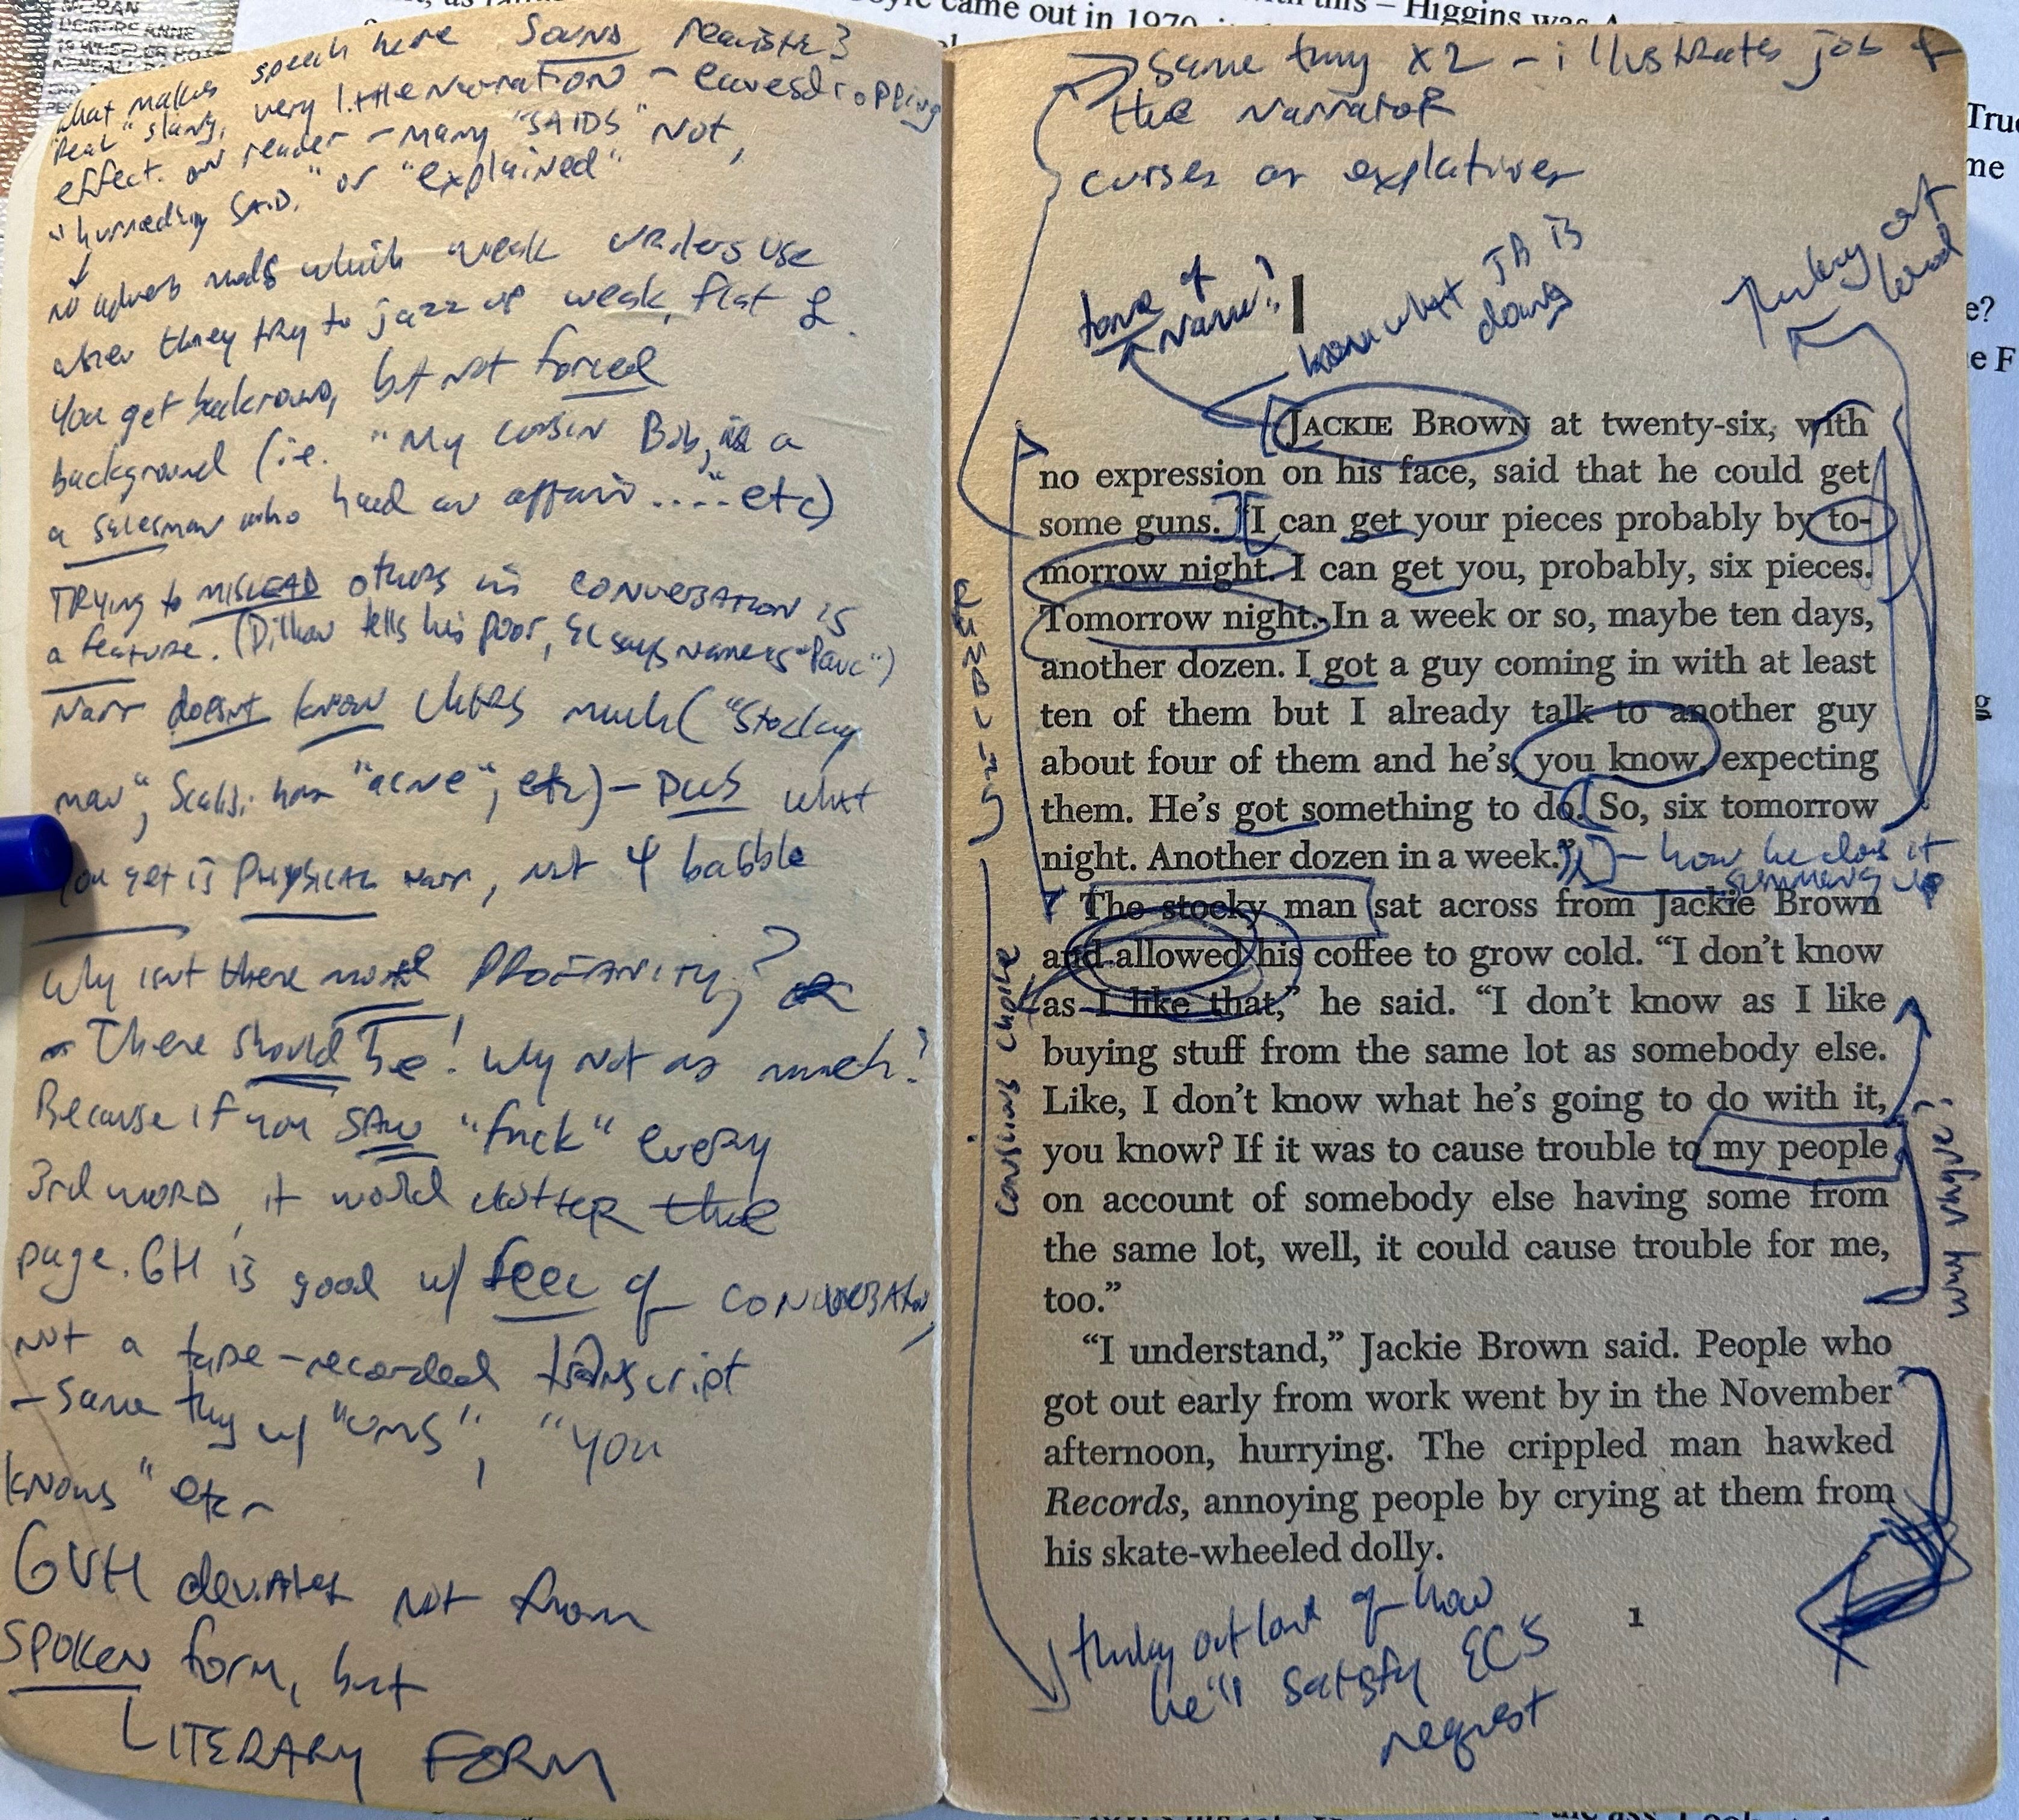 what makes speech here sounds realistic?
Real "slang, very little narration - eavesdropping
effect. on reader - many "SAIDS" not,
"humedly SAID," or "explained"
no adverb mods which weak writers use
when they try to jazz up weak, flat
You get background, but not forced
background (i.e. "My cousin Bob, is a
a salesman who had an affair ...." etc)
TRYING to MISLEAD others in CONVERSATION is
a feature. (Dillon tells he's poor, EC says name is "Paul")
Narr doesnt know chkrs much ("Stocky
man", Scalisi has "acne", etc) - PLUS what
you get is PHYSICAL narr, not babble
Why isnt there more PROFANITY?
- There should be! Why not as much?
Because if you SAW "fuck" every
3rd WORD, it would clutter the
page. GH is good w/ feel of CONVERSATION,
not a tape-recorded transcript
- Same thng w/ "UMS", "you
knows" etc
GVH deviates not from
SPOKEN form, but
LITERARY FORM
came out in 1970
Higgins was
same thng x2 - illustrates job of
the narrator
curses or explatives
tone of
narr?
know what JB is
doing
thnkng out
loud
JACKIE BROWN at twenty-six, with
no expression on his face, said that he could get
some guns. "I can get your pieces probably by to-
morrow night. I can get you, probably, six pieces.
Tomorrow night. In a week or so, maybe ten days,
another dozen. I got a guy coming in with at least
ten of them but I already talk to another guy
about four of them and he's, you know, expecting
them. He's got something to do. So, six tomorrow
night. Another dozen in a week."
- how he does it
summing up
The stocky man sat across from Jackie Brown
and allowed his coffee to grow cold. "I don't know
as I like that," he said. "I don't know as I like
buying stuff from the same lot as somebody else.
Like, I don't know what he's going to do with it,
you know? If it was to cause trouble to my people
on account of somebody else having some from
the same lot, well, it could cause trouble for me,
too."
conscious choice
"I understand," Jackie Brown said. People who
got out early from work went by in the November
afternoon, hurrying. The crippled man hawked
Records, annoying people by crying at them from
his skate-wheeled dolly.
1
thnkng out loud of how
he'll satisfy ECS
request